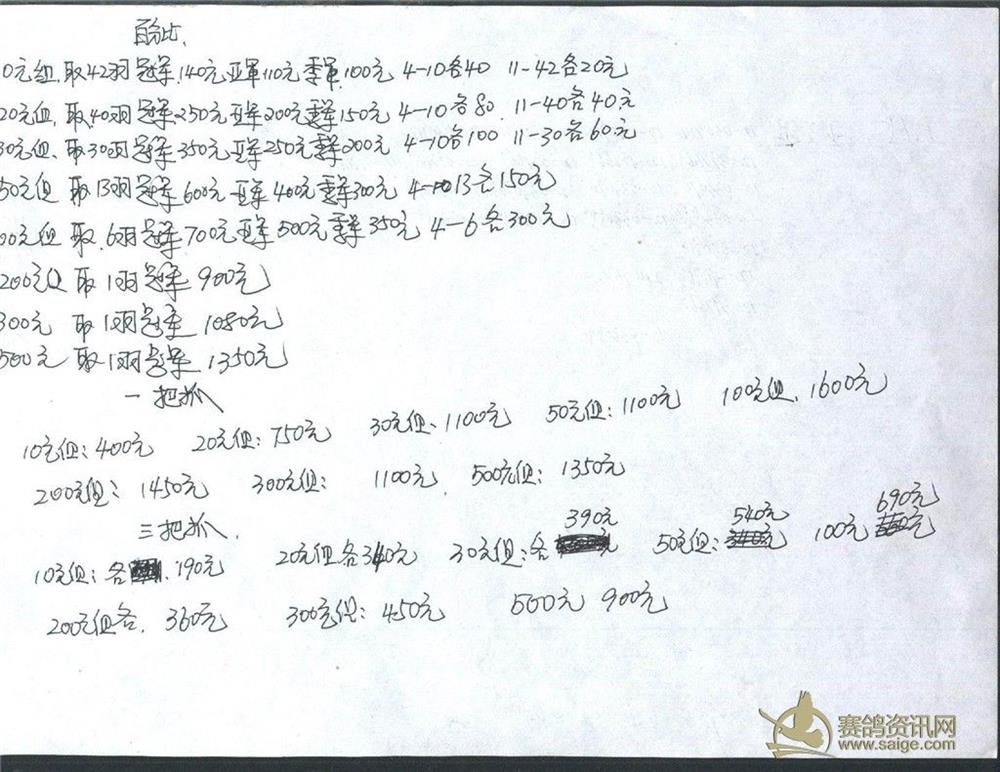 百分比.
0元组.取42羽冠军.140元亚军110元季军.100元 4-10各40 11-42各20元
20元组.取.40羽冠军250元亚军200元季军150元 4-10各80. 11-40各40元
30元组.取30羽冠军350元亚军250元季军200元 4-10各100 11-30各60元
50元组 取13羽冠军600元亚军400元季军300元 4-13各150元
00元组 取.6羽冠军700元亚军500元季军350元 4-6各300元
200元组 取1羽冠军900元
300元 取1羽冠军 1080元
500元 取1羽冠军 1350元
一把抓
10元组:400元 20元组:750元 30元组.1100元 50元组:1100元 100元组.1600元
200元组: 1450元 300元组: 1100元 500元组: 1350元
三把抓.
10元组:各.190元 20元组各340元 30元组:各390元 50元组:540元 100元690元
200元组各. 360元 300元组: 450元 500元 900元
赛鸽资讯网
www.saige.com